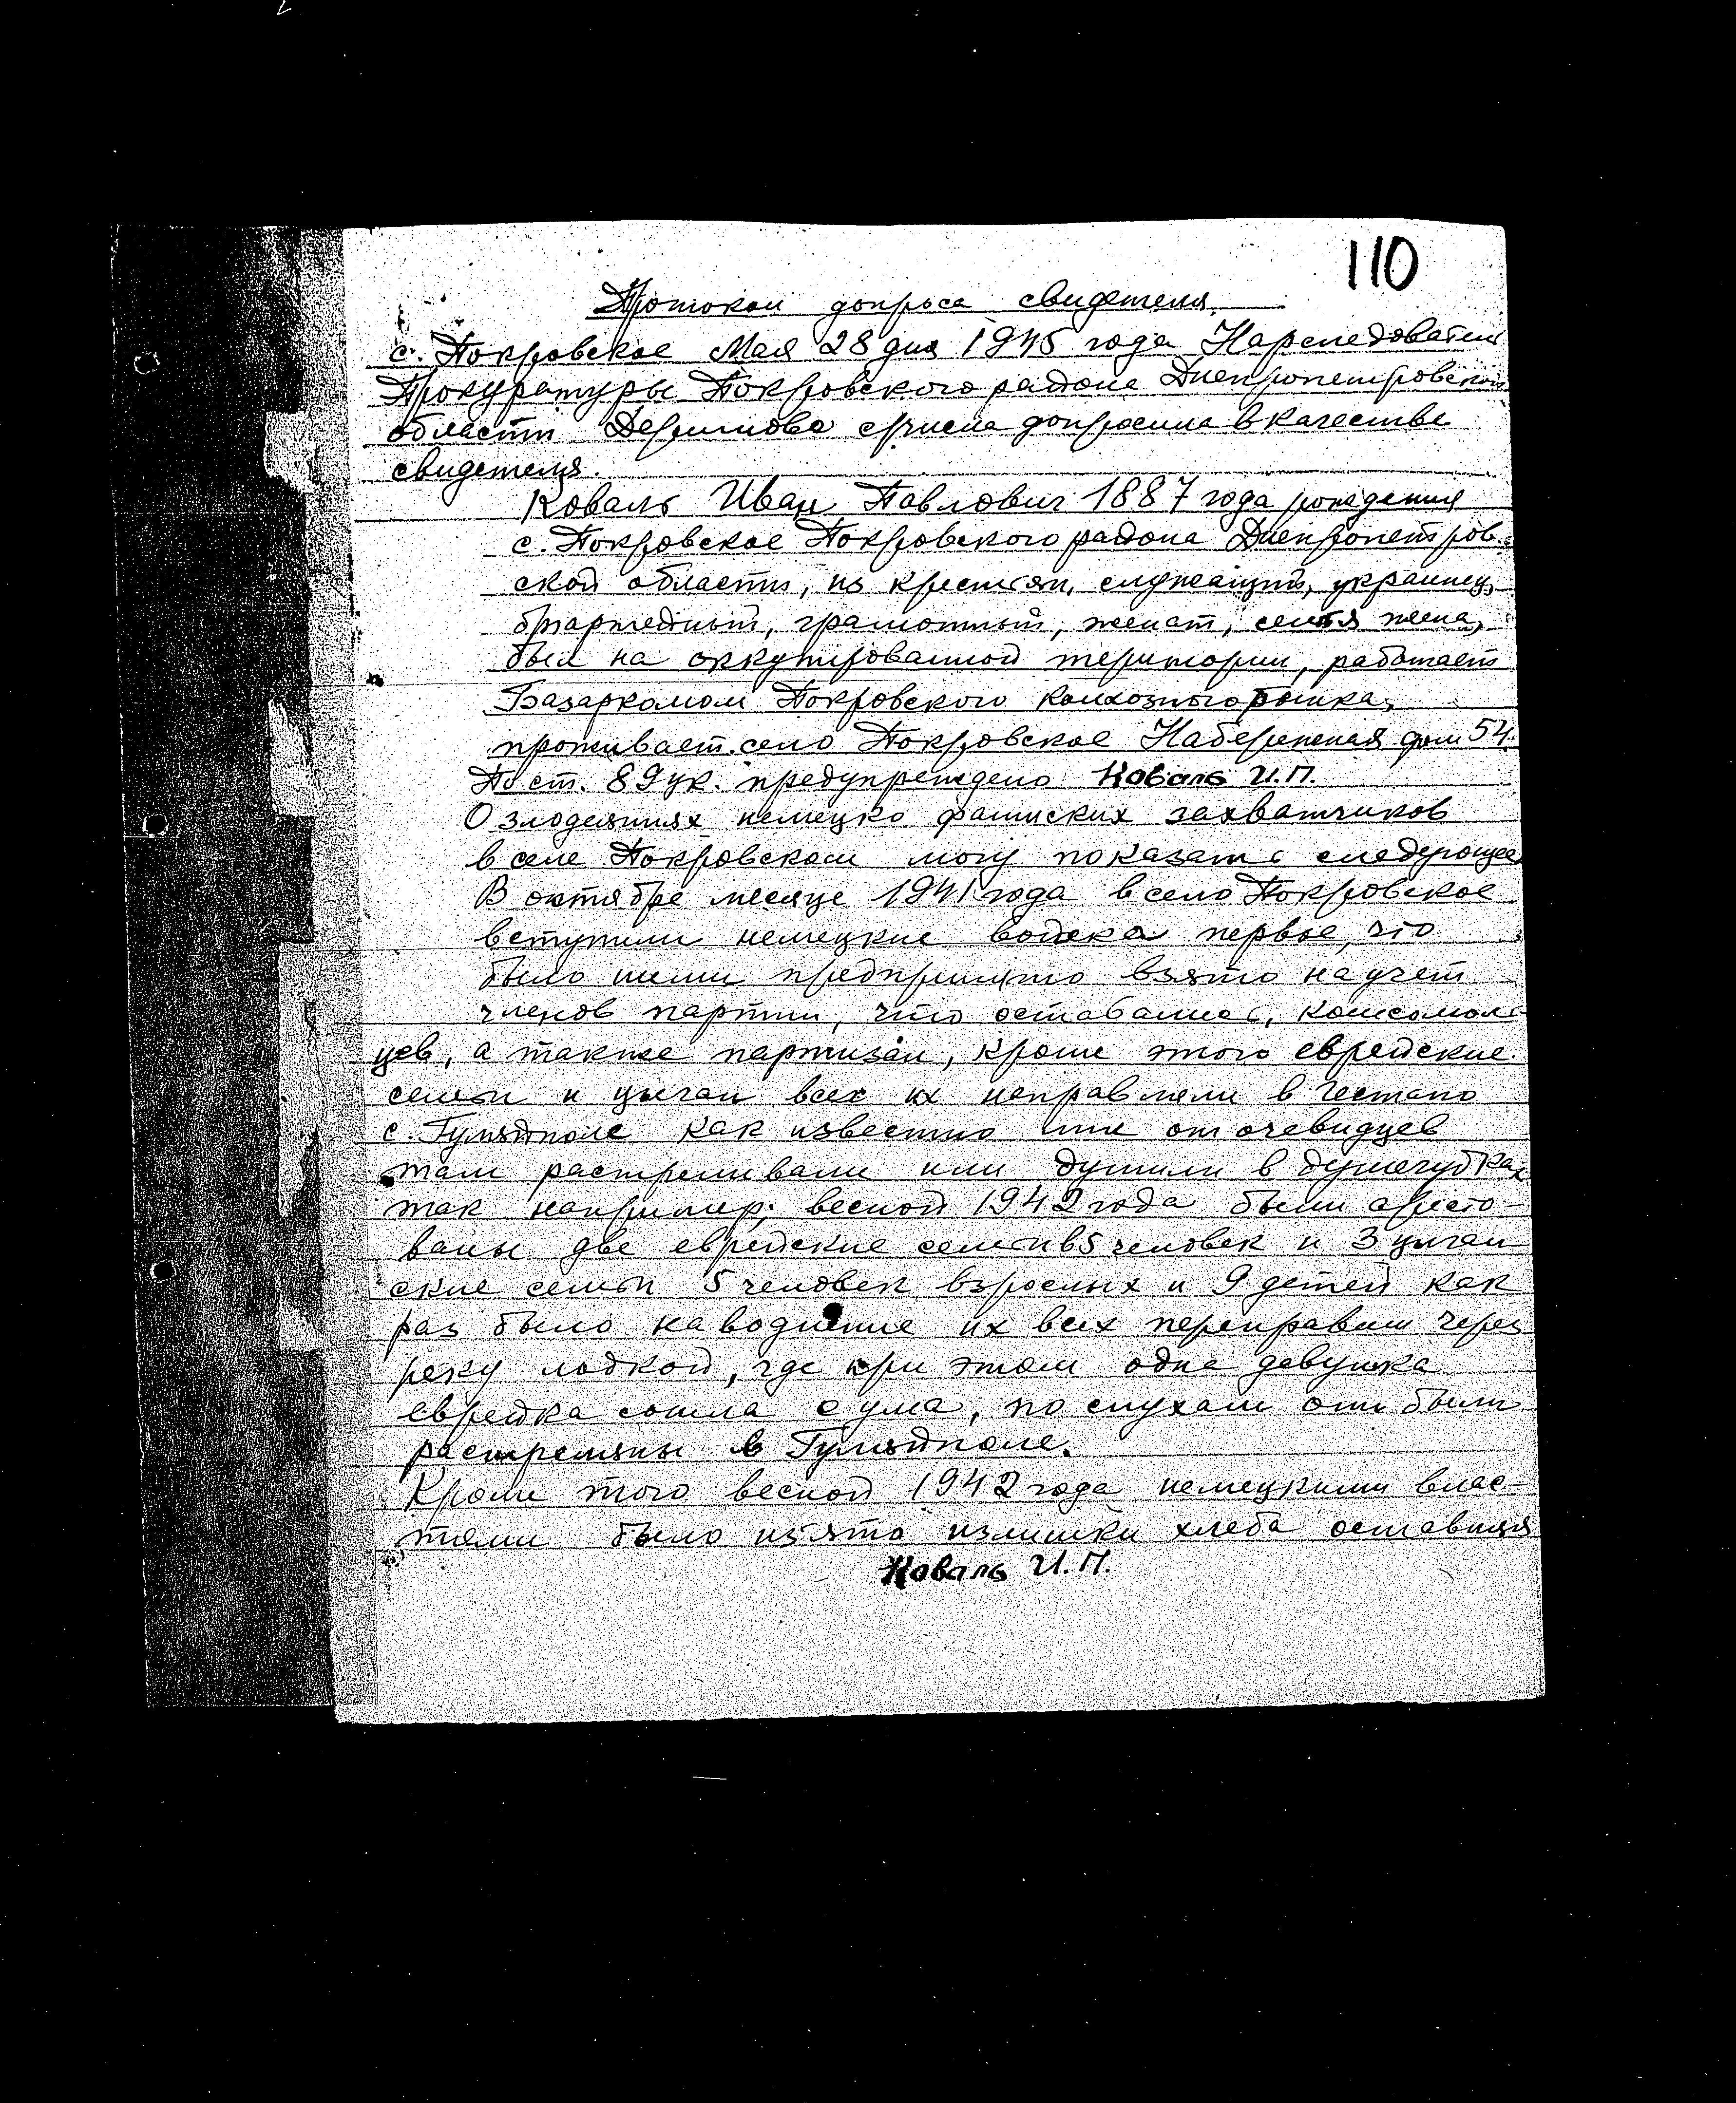 110
Протокол допроса свидетеля.
с. Покровское Мая 28 дня 1945 года Нарследователь
Прокуратуры Покровского района Днепропетровской
области сего числа допросила в качестве
свидетеля.
Коваль Иван Павлович 1887 года рождения
с. Покровское Покровского района Днепропетров-
ской области, из крестьян, служащий, украинец,
безпартейный, грамотный, женат, семья жена,
был на оккупированной територии, работает
Базаркомом Покровского колхозного рынка,
проживает село Покровское Набережная дом 54.
По ст. 89 ук. предупреждено Коваль И.П.
О злодеяниях немецко фашиских захватчиков
в селе Покровском могу показать следующее
В октябре месяце 1941 года в село Покровское
вступили немецкие войска первое, что
было ними предпринято взято на учет
членов партии, что оставались, комсомоль-
цев, а также партизан, кроме этого еврейские
семьи и цыган всех их направляли в гестапо
с. Гуляйполе как известно мне от очевидцев
там растреливали или душили в душегубках
так например; весной 1942 года были аресто-
ваны две еврейские семьи в 5 человек и 3 цыган
ские семьи 5 человек взрослых и 9 детей как
раз было наводнение их всех переправили через
реку лодкой, где при этом одна девушка
еврейка сошла с ума, по слухам они были
растреляны в Гуляйполе.
Кроме того весной 1942 года немецкими влас-
тями было изято излишки хлеба оставшия
Коваль И.П.